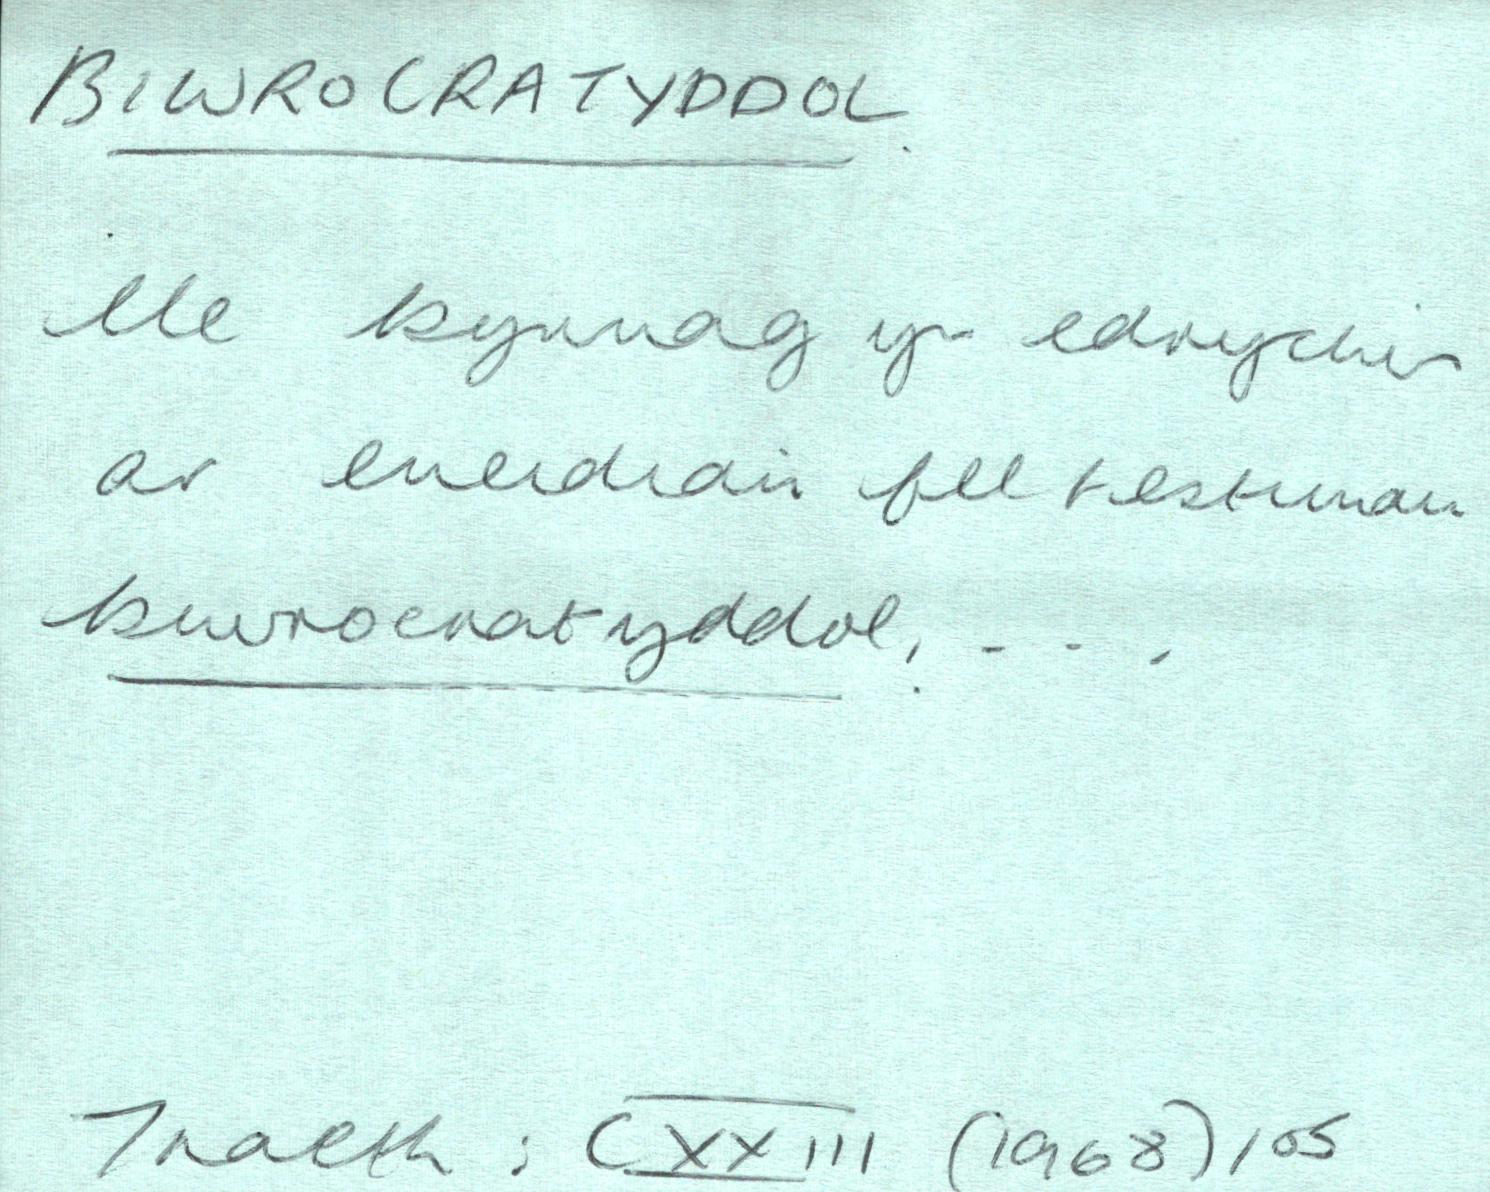 BIWROCRATYDDOL.
lle bynnag yr edrychir
ar eneidiau fel testunau
biwrocratyddol, . . .
Traeth : CXXIII (1968) 105